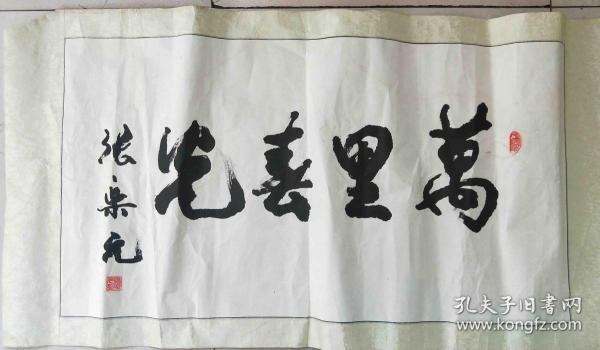 萬里春光
张宗元
孔夫子旧書网
www.kongfz.com